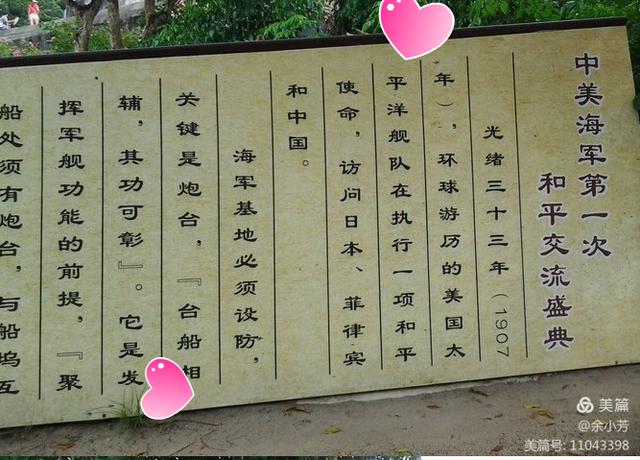 中美海军第一次
和平交流盛典
光绪三十三年（1907
年），环球游历的美国太
平洋舰队在执行一项和平
使命，访问日本、菲律宾
和中国。
海军基地必须设防，
关键是炮台，『台船相
辅，其功可彰』。它是发
挥军舰功能的前提，『聚
船处须有炮台，与船坞互
美篇
@余小芳
美篇号: 11043398